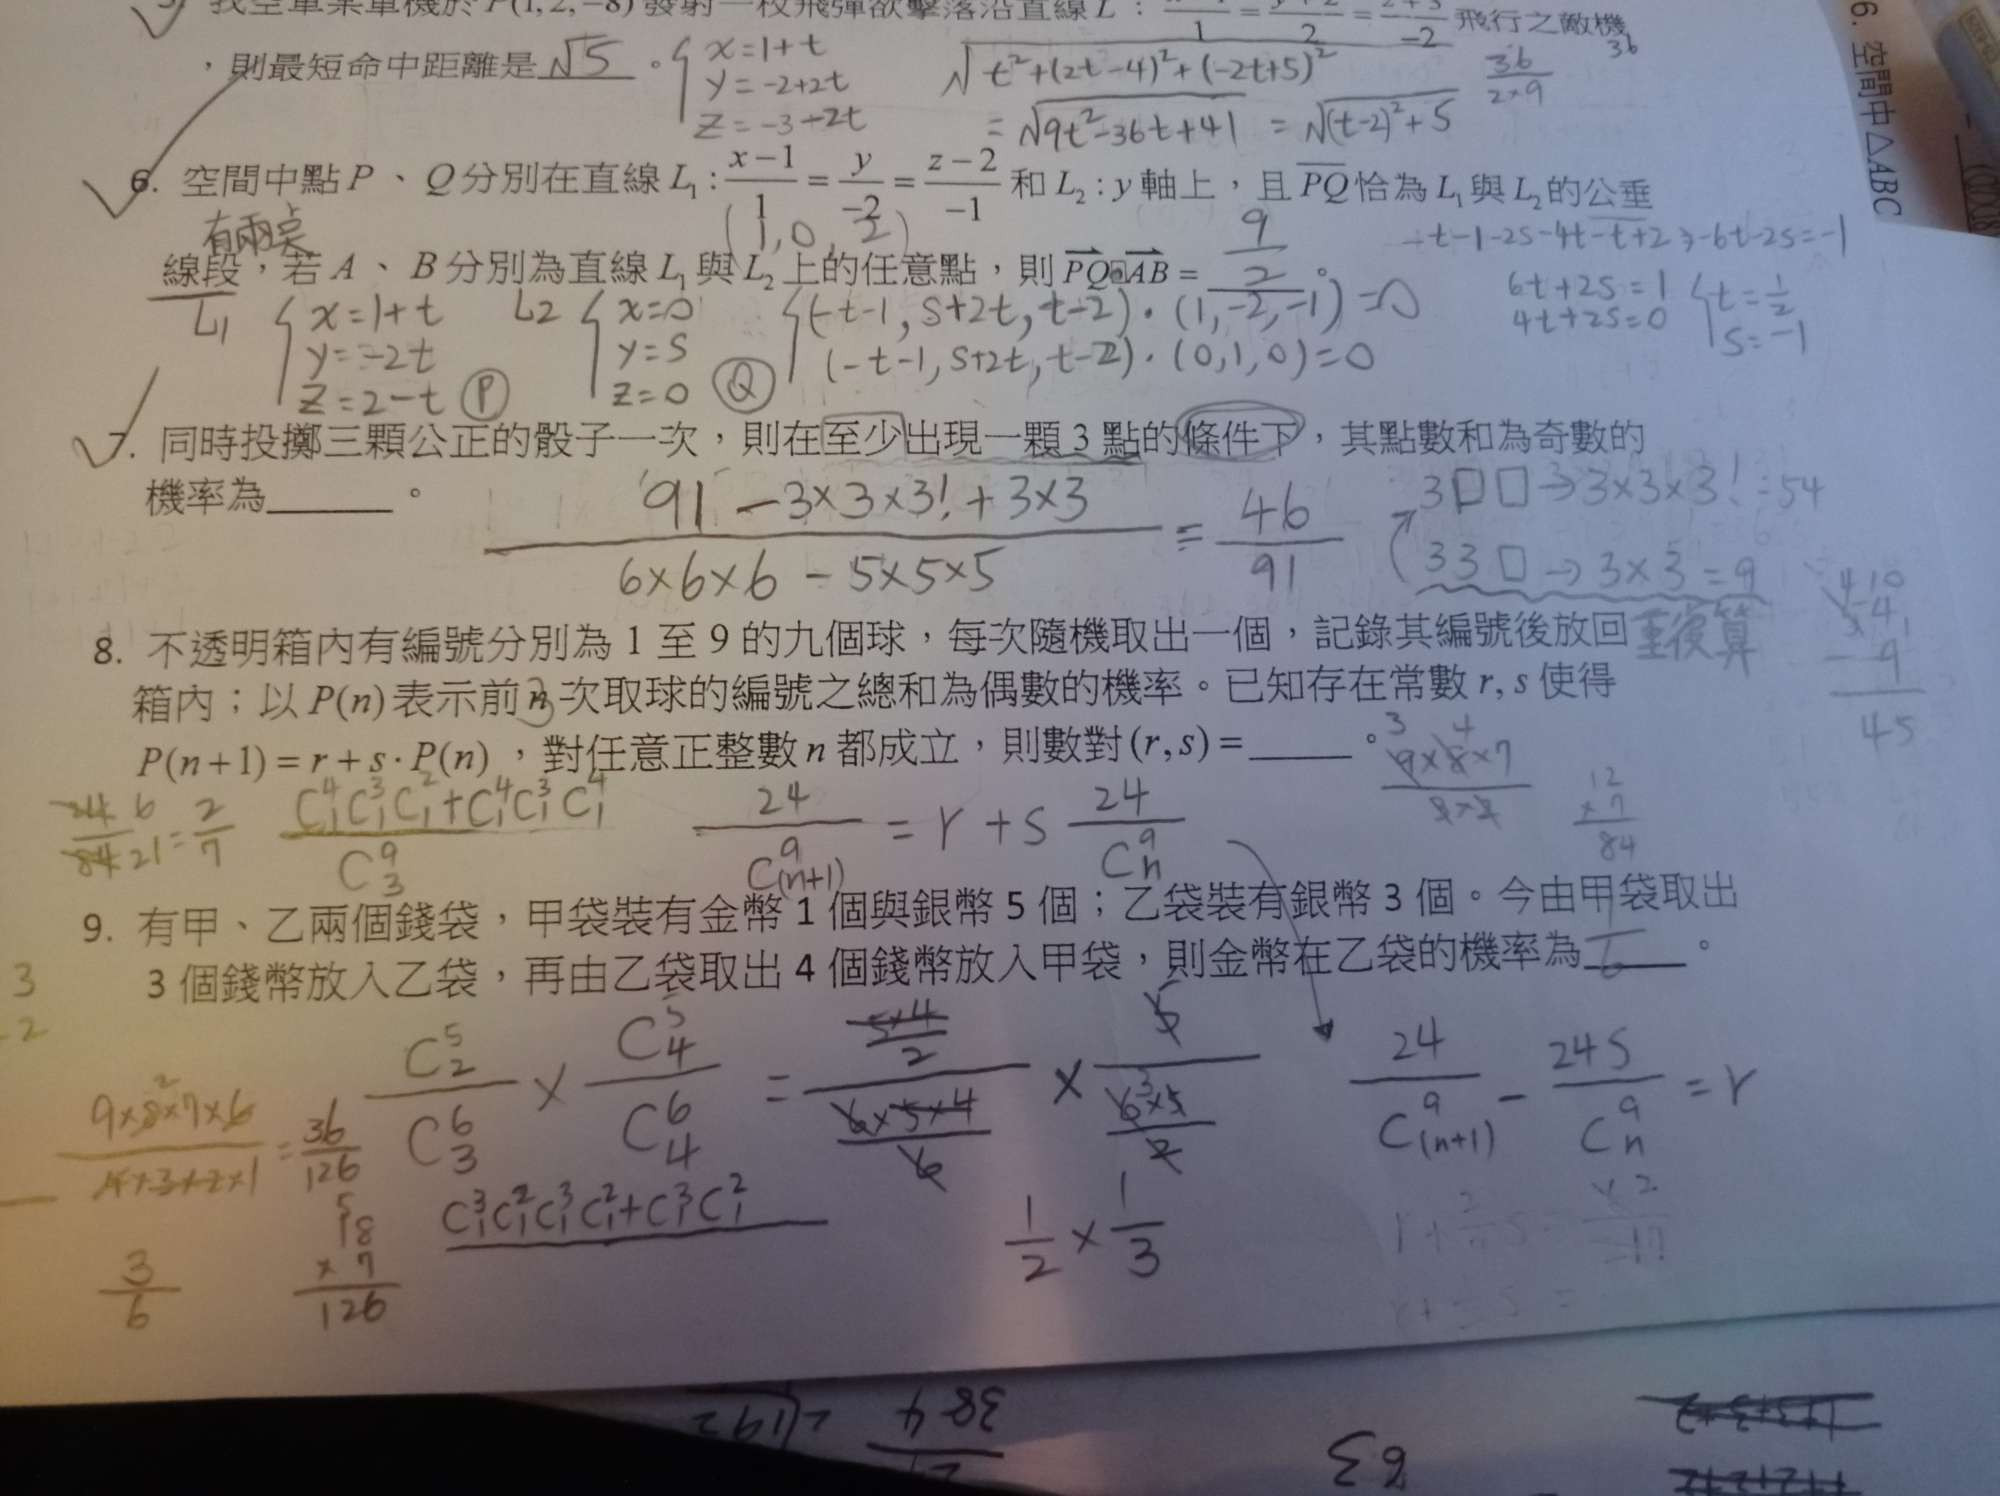 我空軍某軍機於 P(1, 2, −8) 發射一枚飛彈欲擊落沿直線 L : = = 飛行之敵機
1 2 −2
,則最短命中距離是 √5 。
{ x=1+t
y=-2+2t
z=-3-2t
√t²+(2t-4)²+(-2t+5)²
= √9t²-36t+41 = √(t-2)²+5
36/2×9
36
6. 空間中點 P 、 Q 分別在直線 L₁ : (x−1)/1 = y/−2 = (z−2)/−1 和 L₂ : y 軸上,且 PQ 恰為 L₁ 與 L₂ 的公垂
有兩桌
(1, 0, 2)
線段,若 A 、 B 分別為直線 L₁ 與 L₂ 上的任意點,則 PQ·AB = 9/2 。
-t-1-2s-4t-t+2 ⇒ -6t-2s=-1
6t+2s=1
4t+2s=0
{ t=1/2
s=-1
L1 { x=1+t
y=-2t
z=2-t Ⓟ
L2 { x=0
y=s
z=0 Ⓠ
{ (-t-1, s+2t, t-2)·(1,-2,-1)=0
(-t-1, s+2t, t-2)·(0,1,0)=0
7. 同時投擲三顆公正的骰子一次,則在至少出現一顆 3 點的條件下,其點數和為奇數的
機率為______。
91-3×3×3!+3×3 / 6×6×6-5×5×5 = 46/91
3□□→3×3×3!=54
33□→3×3=9
重複算
4 10
54
- 9
45
8. 不透明箱內有編號分別為 1 至 9 的九個球,每次隨機取出一個,記錄其編號後放回
箱內;以 P(n) 表示前 n 次取球的編號之總和為偶數的機率。已知存在常數 r, s 使得
P(n+1) = r + s · P(n) ,對任意正整數 n 都成立,則數對 (r, s) = _____ 。
24 6 / 84 21 = 2/7
C⁴₁C³₁C²₁+C⁴₁C³₁C⁴₁ / C⁹₃
24/C⁹(n+1) = r + s 24/C⁹n
9×8×7
12
×7
84
9. 有甲、乙兩個錢袋,甲袋裝有金幣 1 個與銀幣 5 個;乙袋裝有銀幣 3 個。今由甲袋取出
3 個錢幣放入乙袋,再由乙袋取出 4 個錢幣放入甲袋,則金幣在乙袋的機率為 1/6 。
C⁵₂/C⁶₃ × C⁵₄/C⁶₄ = 5×4/2 / 6×5×4/6 × 5 / 6×5/2
24/C⁹(n+1) - 24s/C⁹n = r
9×8×7×6 / 4×3×2×1 = 36/126
C³₁C²₁C³₁C²₁+C³₁C²₁
1/2 × 1/3
3/6
18
×7
126
6. 空間中△ABC
63